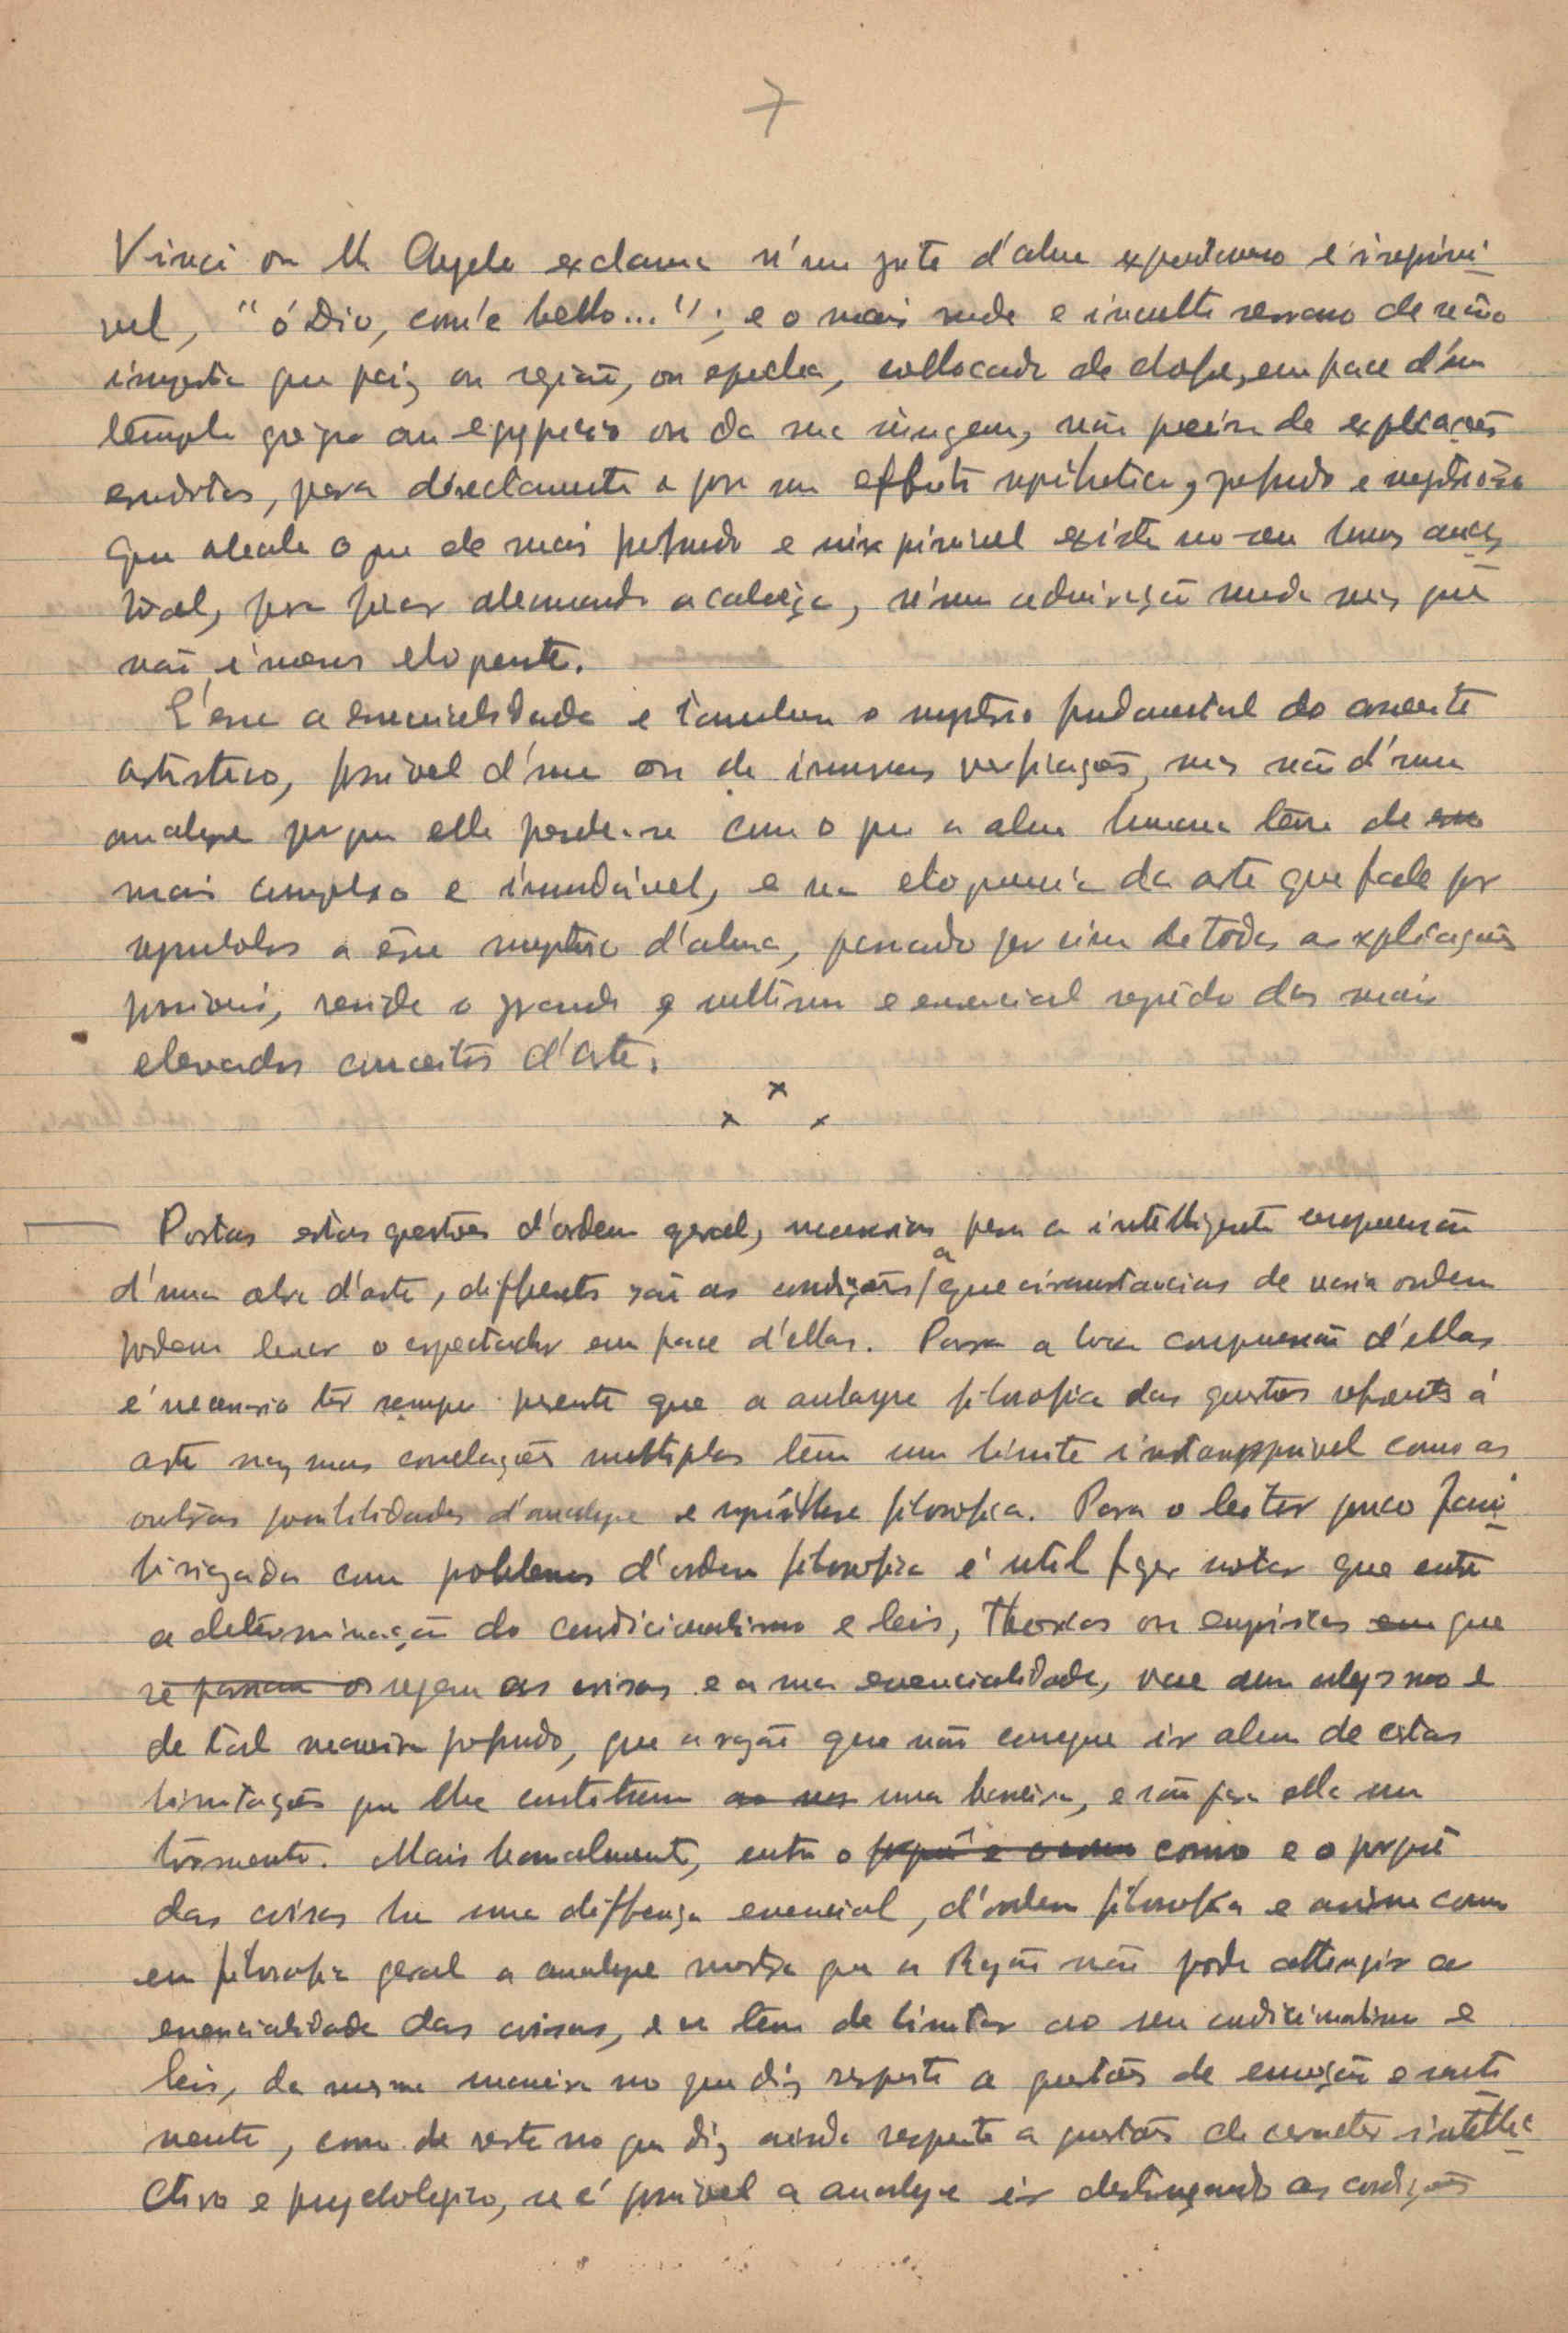 7
Vinci ou M. Angelo exclama n'um grito d'alma espontaneo e irreprimi-
vel, "ó Dio, com'é bello..."; e o mais rude e inculto serrano de não
importa que paiz ou região, ou epocha, collocado de chofre, em face d'um
templo grego ou egypcio ou da sua imagem, não precisa de explicações
eruditas, para directamente e por um effeito synthetico, profundo e mysterioso
que abala o que de mais profundo e inexprimivel existe no seu ances-
tral, para ficar abanando a cabeça, n'uma admiração muda mas que
não é menos eloquente.
É essa a essencialidade e tambem o mysterio fundamental do
artistico, possivel d'uma ou de inumeras verificações, mas não d'uma
analyse porque elle perde-se com o que a alma humana tem de
mais complexo e insondavel, e na eloquencia da arte que falle por
symbolos a esse mysterio d'alma, passando por cima de todas as explicações
possiveis, reside o grande e ultimo e essencial segredo dos mais
elevados conceitos d'arte.
x x x
Postas estas questões d'ordem geral, necessarias para a intelligente comprensão
d'uma obra d'arte, differentes são as condições a que circumstancias de varia ordem
podem levar o espectador em face d'ellas. Para a boa comprensão d'ellas
é necessario ter sempre presente que a analyse filosofica das questões referentes á
arte nas suas correlações multiplas tem um limite intransponivel como as
outras possibilidades d'analyse e synthese filosofica. Para o leitor pouco fami-
liarizado com problemas d'ordem filosofica é util fazer notar que entre
a determinação do condicionalismo e leis, theoricas ou empiricas em que
se passam os regem as coisas e a sua essencialidade, vae um abysmo e
de tal maneira profundo, que a razão que não consegue ir alem de estas
limitações que lhe constituem uma barreira, e são para ella um
tormento. Mais banalmente, entre o porquê e o como como e o porquê
das coisas ha uma differença essencial, d'ordem filosofica e assim como
em filosofia geral a analyse mostra que a Razão não pode attingir a
essencialidade das coisas, e se tem de limitar ao seu condicionalismo e
leis, da mesma maneira no que diz respeito a questões de emoção e senti-
mento, como de resto no que diz ainda respeito a questões de caracter intelle-
ctivo e psychologico, se é possivel a analyse ir destrinçando as condições